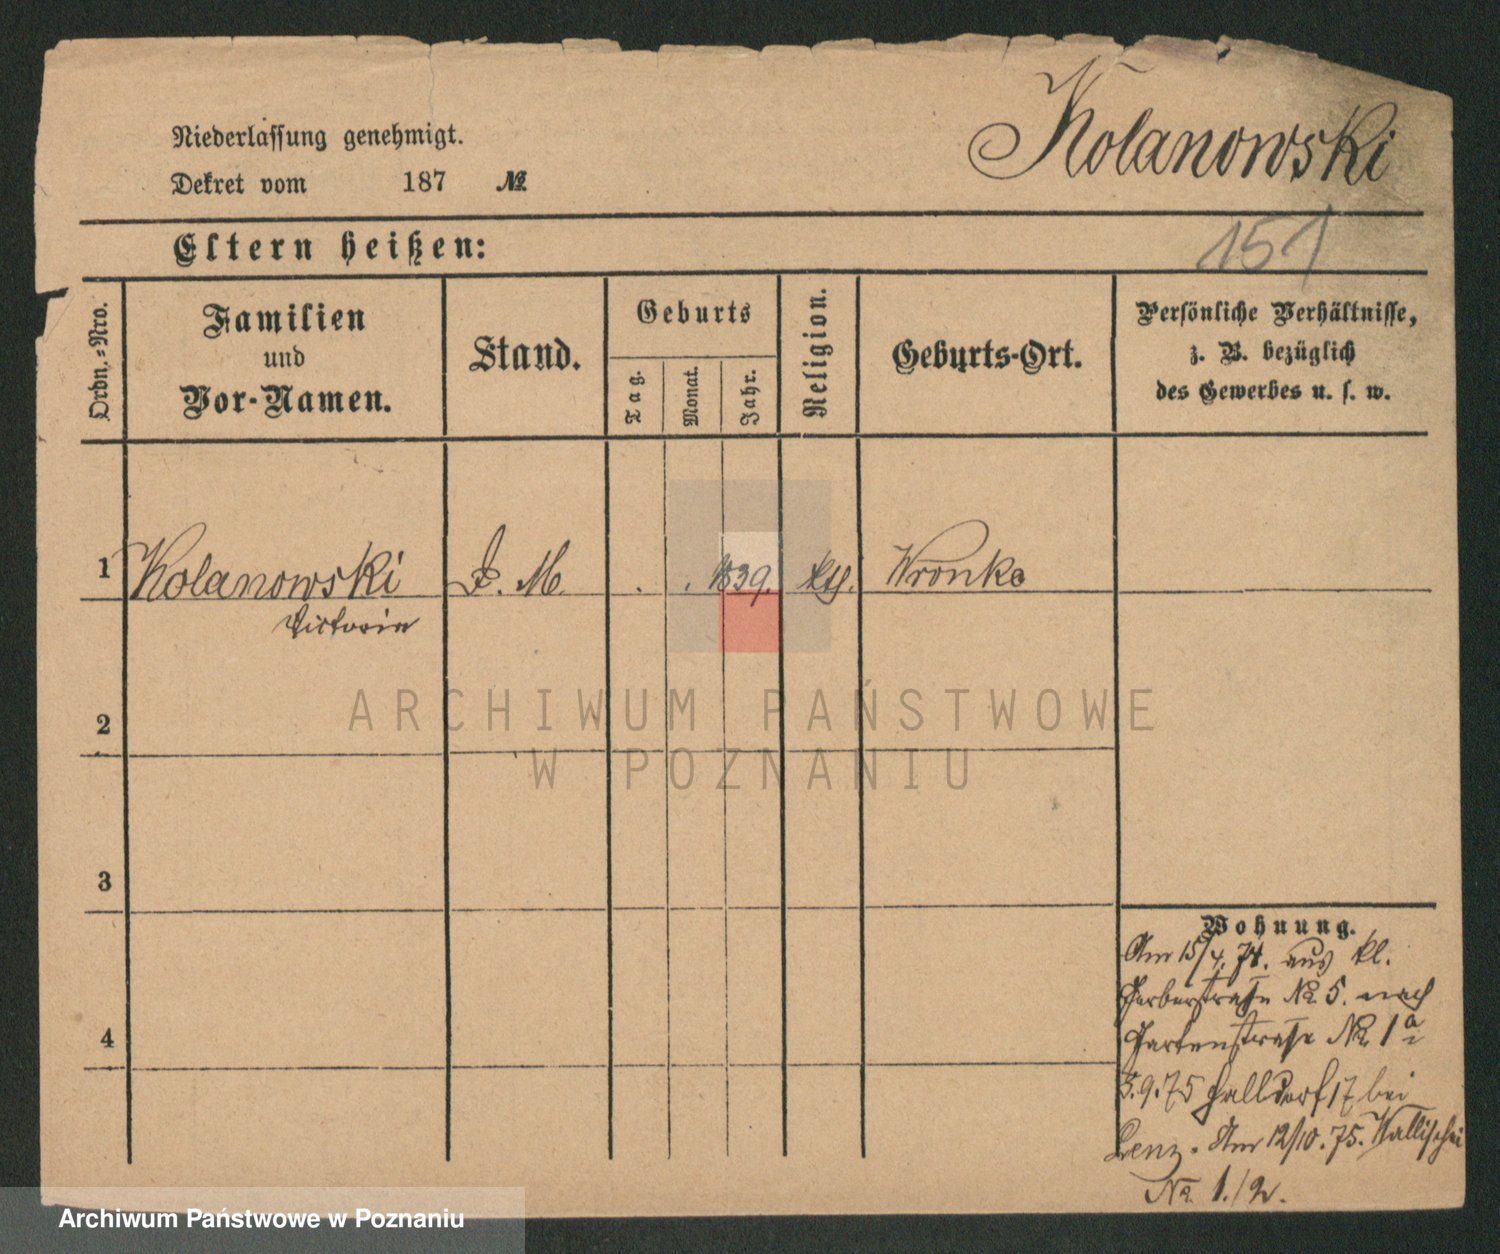 Niederlassung genehmigt.
Dekret vom 187 №
Kolanowski
151
Eltern heißen:
Ordn.-Nro.
Familien
und
Vor-Namen.
Stand.
Geburts
Tag.
Monat.
Jahr.
Religion.
Geburts-Ort.
Persönliche Verhältnisse,
z. B. bezüglich
des Gewerbes u. s. w.
1 Kolanowski D. M. . . 1839. kth. Wronke
Victoria
2
3
4
Wohnung.
Am 15/4. 74. aus kl.
Gerberstraße No. 5. nach
Gartenstraße No. 1a
3.9.75 Halldorf 17 bei
Lenz. Am 12/10.75. Wallischei
No. 1./2.
ARCHIWUM PAŃSTWOWE
W POZNANIU
Archiwum Państwowe w Poznaniu